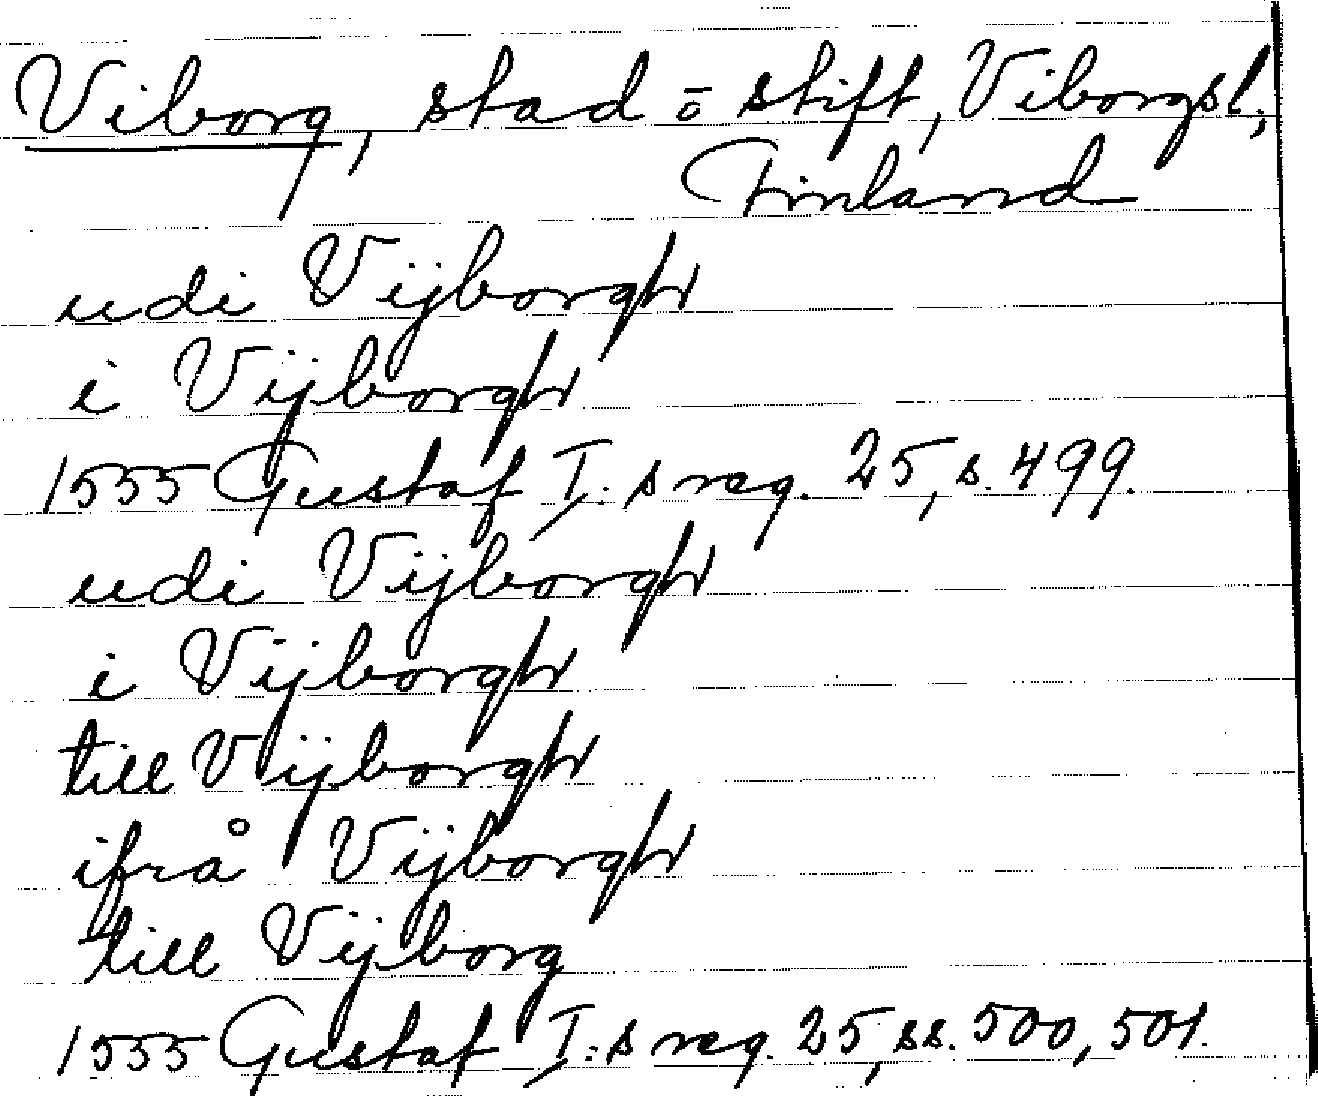 Viborg, stad o stift, Viborgsl.,
Finland
udi Vijborgh
i Vijborgh
1555 Gustaf I:s reg. 25, s. 499.
udi Vijborgh
i Vijborgh
till Vijborgh
ifrå Vijborgh
till Vijborg
1555 Gustaf I:s reg. 25, ss. 500, 501.